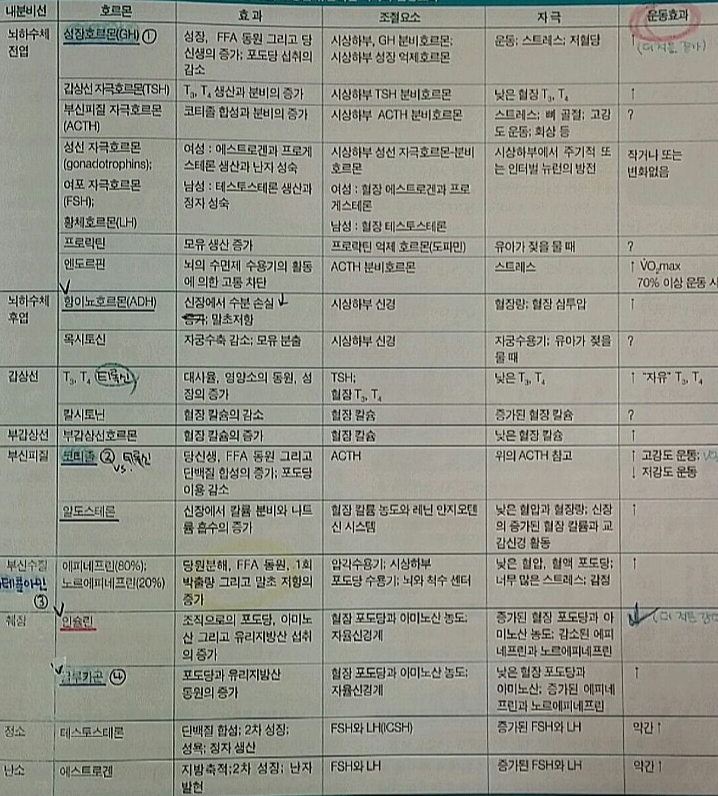 내분비선 호르몬 효과 조절요소 자극 운동효과
뇌하수체 전엽 성장호르몬(GH) ① 성장, FFA 동원 그리고 당 시상하부, GH 분비호르몬; 운동; 스트레스; 저혈당 ↑
신생의 증가; 포도당 섭취의 시상하부 성장 억제호르몬
감소
갑상선 자극호르몬(TSH) T₃, T₄ 생산과 분비의 증가 시상하부 TSH 분비호르몬 낮은 혈장 T₃, T₄ ↑
부신피질 자극호르몬 코티졸 합성과 분비의 증가 시상하부 ACTH 분비호르몬 스트레스; 뼈 골절; 고강 ?
(ACTH) 도 운동; 화상 등
성선 자극호르몬 여성 : 에스트로겐과 프로게 시상하부 성선 자극호르몬-분비 시상하부에서 주기적 또 작거나 또는
(gonadotrophins); 스테론 생산과 난자 성숙 호르몬 는 인터벌 뉴런의 방전 변화없음
여포 자극호르몬 남성 : 테스토스테론 생산과 여성 : 혈장 에스트로겐과 프로
(FSH); 정자 성숙 게스테론
황체호르몬(LH) 남성 : 혈장 테스토스테론
프로락틴 모유 생산 증가 프로락틴 억제 호르몬(도파민) 유아가 젖을 물 때 ?
엔도르핀 뇌의 수면제 수용기의 활동 ACTH 분비호르몬 스트레스 ↑ V̇O₂max
에 의한 고통 차단 70% 이상 운동 시
뇌하수체 항이뇨호르몬(ADH) 신장에서 수분 손실 ↓ 시상하부 신경 혈장량; 혈장 삼투압 ↑
후엽 증가; 말초저항
옥시토신 자궁수축 감소; 모유 분출 시상하부 신경 자궁수용기; 유아가 젖을 ?
물 때
갑상선 T₃, T₄ 대사율, 영양소의 동원, 성 TSH; 낮은 T₃, T₄ ↑ "자유" T₃, T₄
장의 증가 혈장 T₃, T₄
칼시토닌 혈장 칼슘의 감소 혈장 칼슘 증가된 혈장 칼슘 ?
부갑상선 부갑상선호르몬 혈장 칼슘의 증가 혈장 칼슘 낮은 혈장 칼슘 ↑
부신피질 코티졸 ② vs. 당신생, FFA 동원 그리고 ACTH 위의 ACTH 참고 ↑ 고강도 운동;
단백질 합성의 증가; 포도당 ↓ 저강도 운동
이용 감소
알도스테론 신장에서 칼륨 분비와 나트 혈장 칼륨 농도와 레닌 안지오텐 낮은 혈압과 혈장량; 신장 ↑
륨 흡수의 증가 신 시스템 의 증가된 혈장 칼륨과 교
감신경 활동
부신수질 에피네프린(80%); 당원분해, FFA 동원, 1회 압각수용기; 시상하부 낮은 혈압, 혈액 포도당; ↑
③ 노르에피네프린(20%) 박출량 그리고 말초 저항의 포도당 수용기; 뇌와 척수 센터 너무 많은 스트레스; 감정
증가
췌장 인슐린 조직으로의 포도당, 아미노 혈장 포도당과 아미노산 농도; 증가된 혈장 포도당과 아 ↓
산 그리고 유리지방산 섭취 자율신경계 미노산 농도; 감소된 에피
의 증가 네프린과 노르에피네프린
글루카곤 ④ 포도당과 유리지방산 혈장 포도당과 아미노산 농도; 낮은 혈장 포도당과 ↑
동원의 증가 자율신경계 아미노산; 증가된 에피네
프린과 노르에피네프린
정소 테스토스테론 단백질 합성; 2차 성징; FSH와 LH(ICSH) 증가된 FSH와 LH 약간 ↑
성욕; 정자 생산
난소 에스트로겐 지방축적;2차 성징; 난자 FSH와 LH 증가된 FSH와 LH 약간 ↑
발현